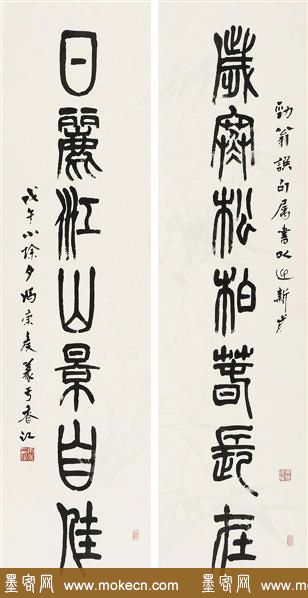 勁翁譔句屬書以迎新歲
歲寒松柏春長在
日麗江山景自佳
戊午小除夕馮康侯篆于香江
墨客网 www.mokecn.com 墨客网